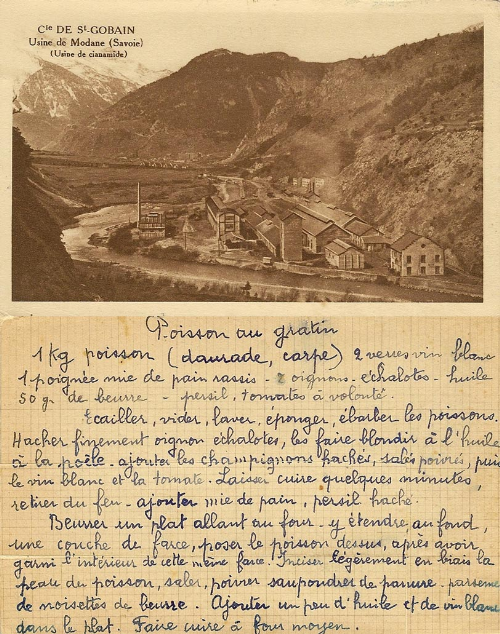 Cie DE St-GOBAIN
Usine de Modane (Savoie)
(Usine de cianamide)
Poisson au gratin
1 Kg poisson (daurade, carpe) 2 verres vin blanc
1 poignée mie de pain rassis - 2 oignons - échalotes - huile
50 g. de beurre - persil, tomates à volonté.
Ecailler, vider, laver, éponger, ébarber les poissons.
Hacher finement oignon échalotes, les faire blondir à l'huile
à la poêle - ajouter les champignons hachés, salés poivrés, puis
le vin blanc et la tomate. Laisser cuire quelques minutes,
retirer du feu - ajouter mie de pain, persil haché.
Beurrer un plat allant au four - y étendre, au fond,
une couche de farce, poser le poisson dessus, après avoir
garni l'intérieur de cette même farce. Inciser légèrement en biais la
peau du poisson, saler, poivrer saupoudrer de panure - parsemé
de noisettes de beurre. Ajouter un peu d'huile et de vin blanc
dans le plat. Faire cuire à four moyen.